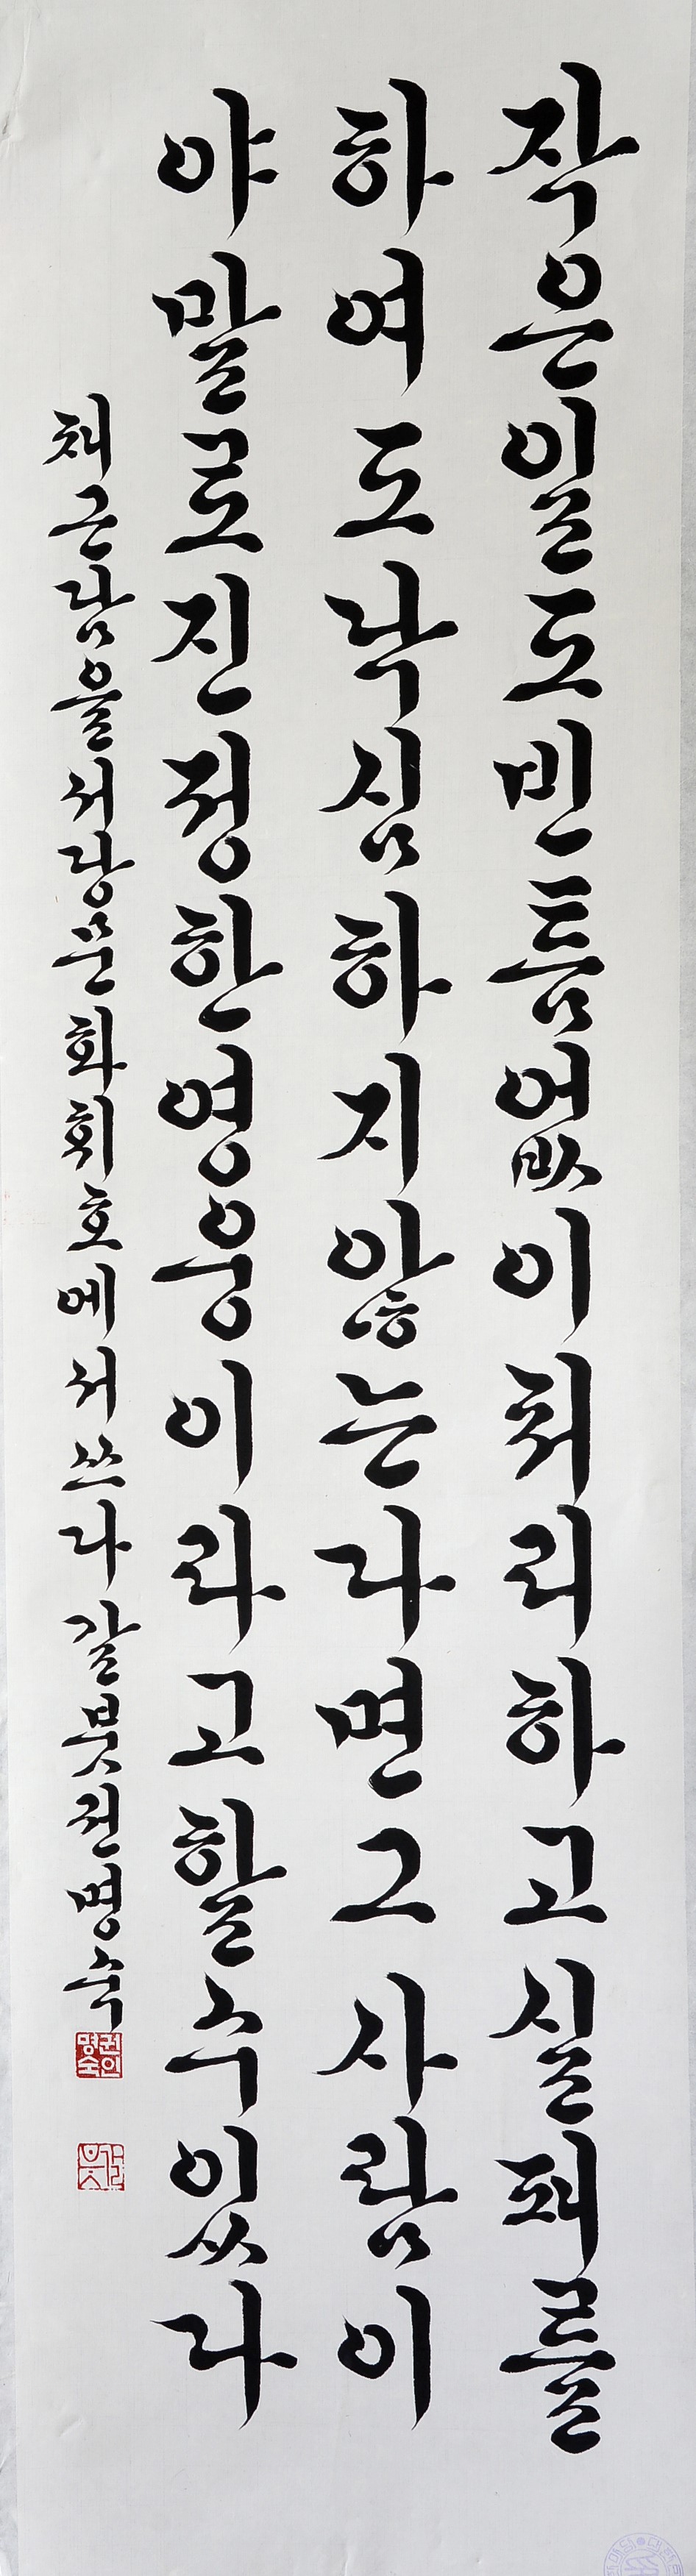 작은일도빈틈없이처리하고실패를
하여도낙심하지않는다면그사람이
야말로진정한영웅이라고할수있다
채근담을서당문화회호에서쓰다갈븟권명숙
권인명숙